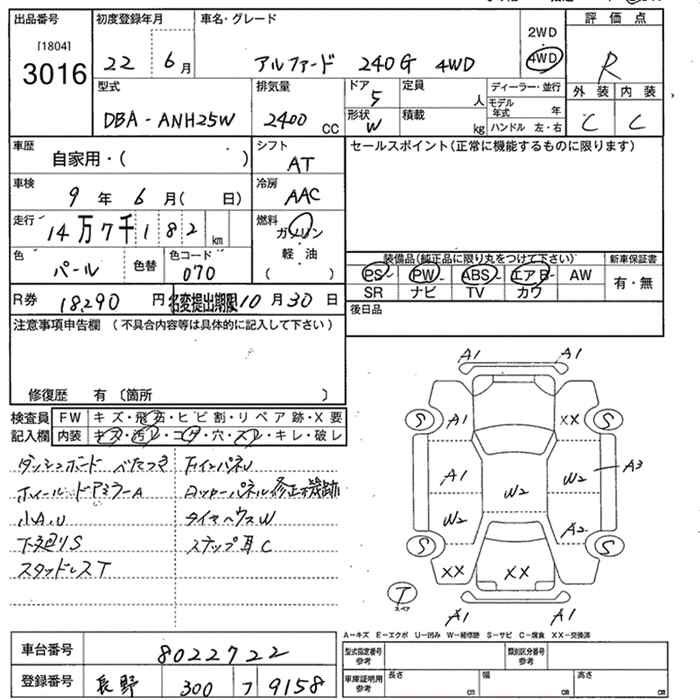 出品番号 初度登録年月 車名・グレード 評価点
[1804]
3016 22 6月 アルファード 240G 4WD 2WD 4WD R
型式 排気量 ドア 定員 ディーラー・並行 外装 内装
DBA-ANH25W 2400 CC 5 人 モデル年式 年 C C
形状 W 積載 kg ハンドル 左・右
車歴 自家用・( ) シフト AT セールスポイント(正常に機能するものに限ります)
車検 9年 6月( 日) 冷房 AAC
走行 14万7千182 km 燃料 ガソリン
軽油
( )
色 パール 色替 色コード 070
装備品(純正品に限り丸をつけて下さい) 新車保証書
PS PW ABS エアB AW 有・無
SR ナビ TV カワ
R券 18,290 円 名変提出期限 10月30日 後日品
注意事項申告欄 (不具合内容等は具体的に記入して下さい)
修復歴 有 〔箇所 〕
検査員 FW キズ・飛石・ヒビ割・リペア跡・X要
記入欄 内装 キズ・汚レ・コゲ・穴・スレ・キレ・破レ
ダッシュボードべたつき
ホイールドアミラーA ロッカーパネル修正機跡
小A.U タイヤハウスW
下廻りS ステップ耳C
スタッドレスT
A1 A1
S A1 XX S
A1 W2 W2 A3
W2 A2
S S
XX XX
T スペア
A1 A1
A-キズ E-エクボ U-凹み W-補修跡 S-サビ C-腐食 XX-交換済
車台番号 8022722 型式指定番号 参考 類別区分番号 参考
登録番号 長野 300 フ 9158 車庫証明用 参考 長さ cm 幅 cm 高さ cm